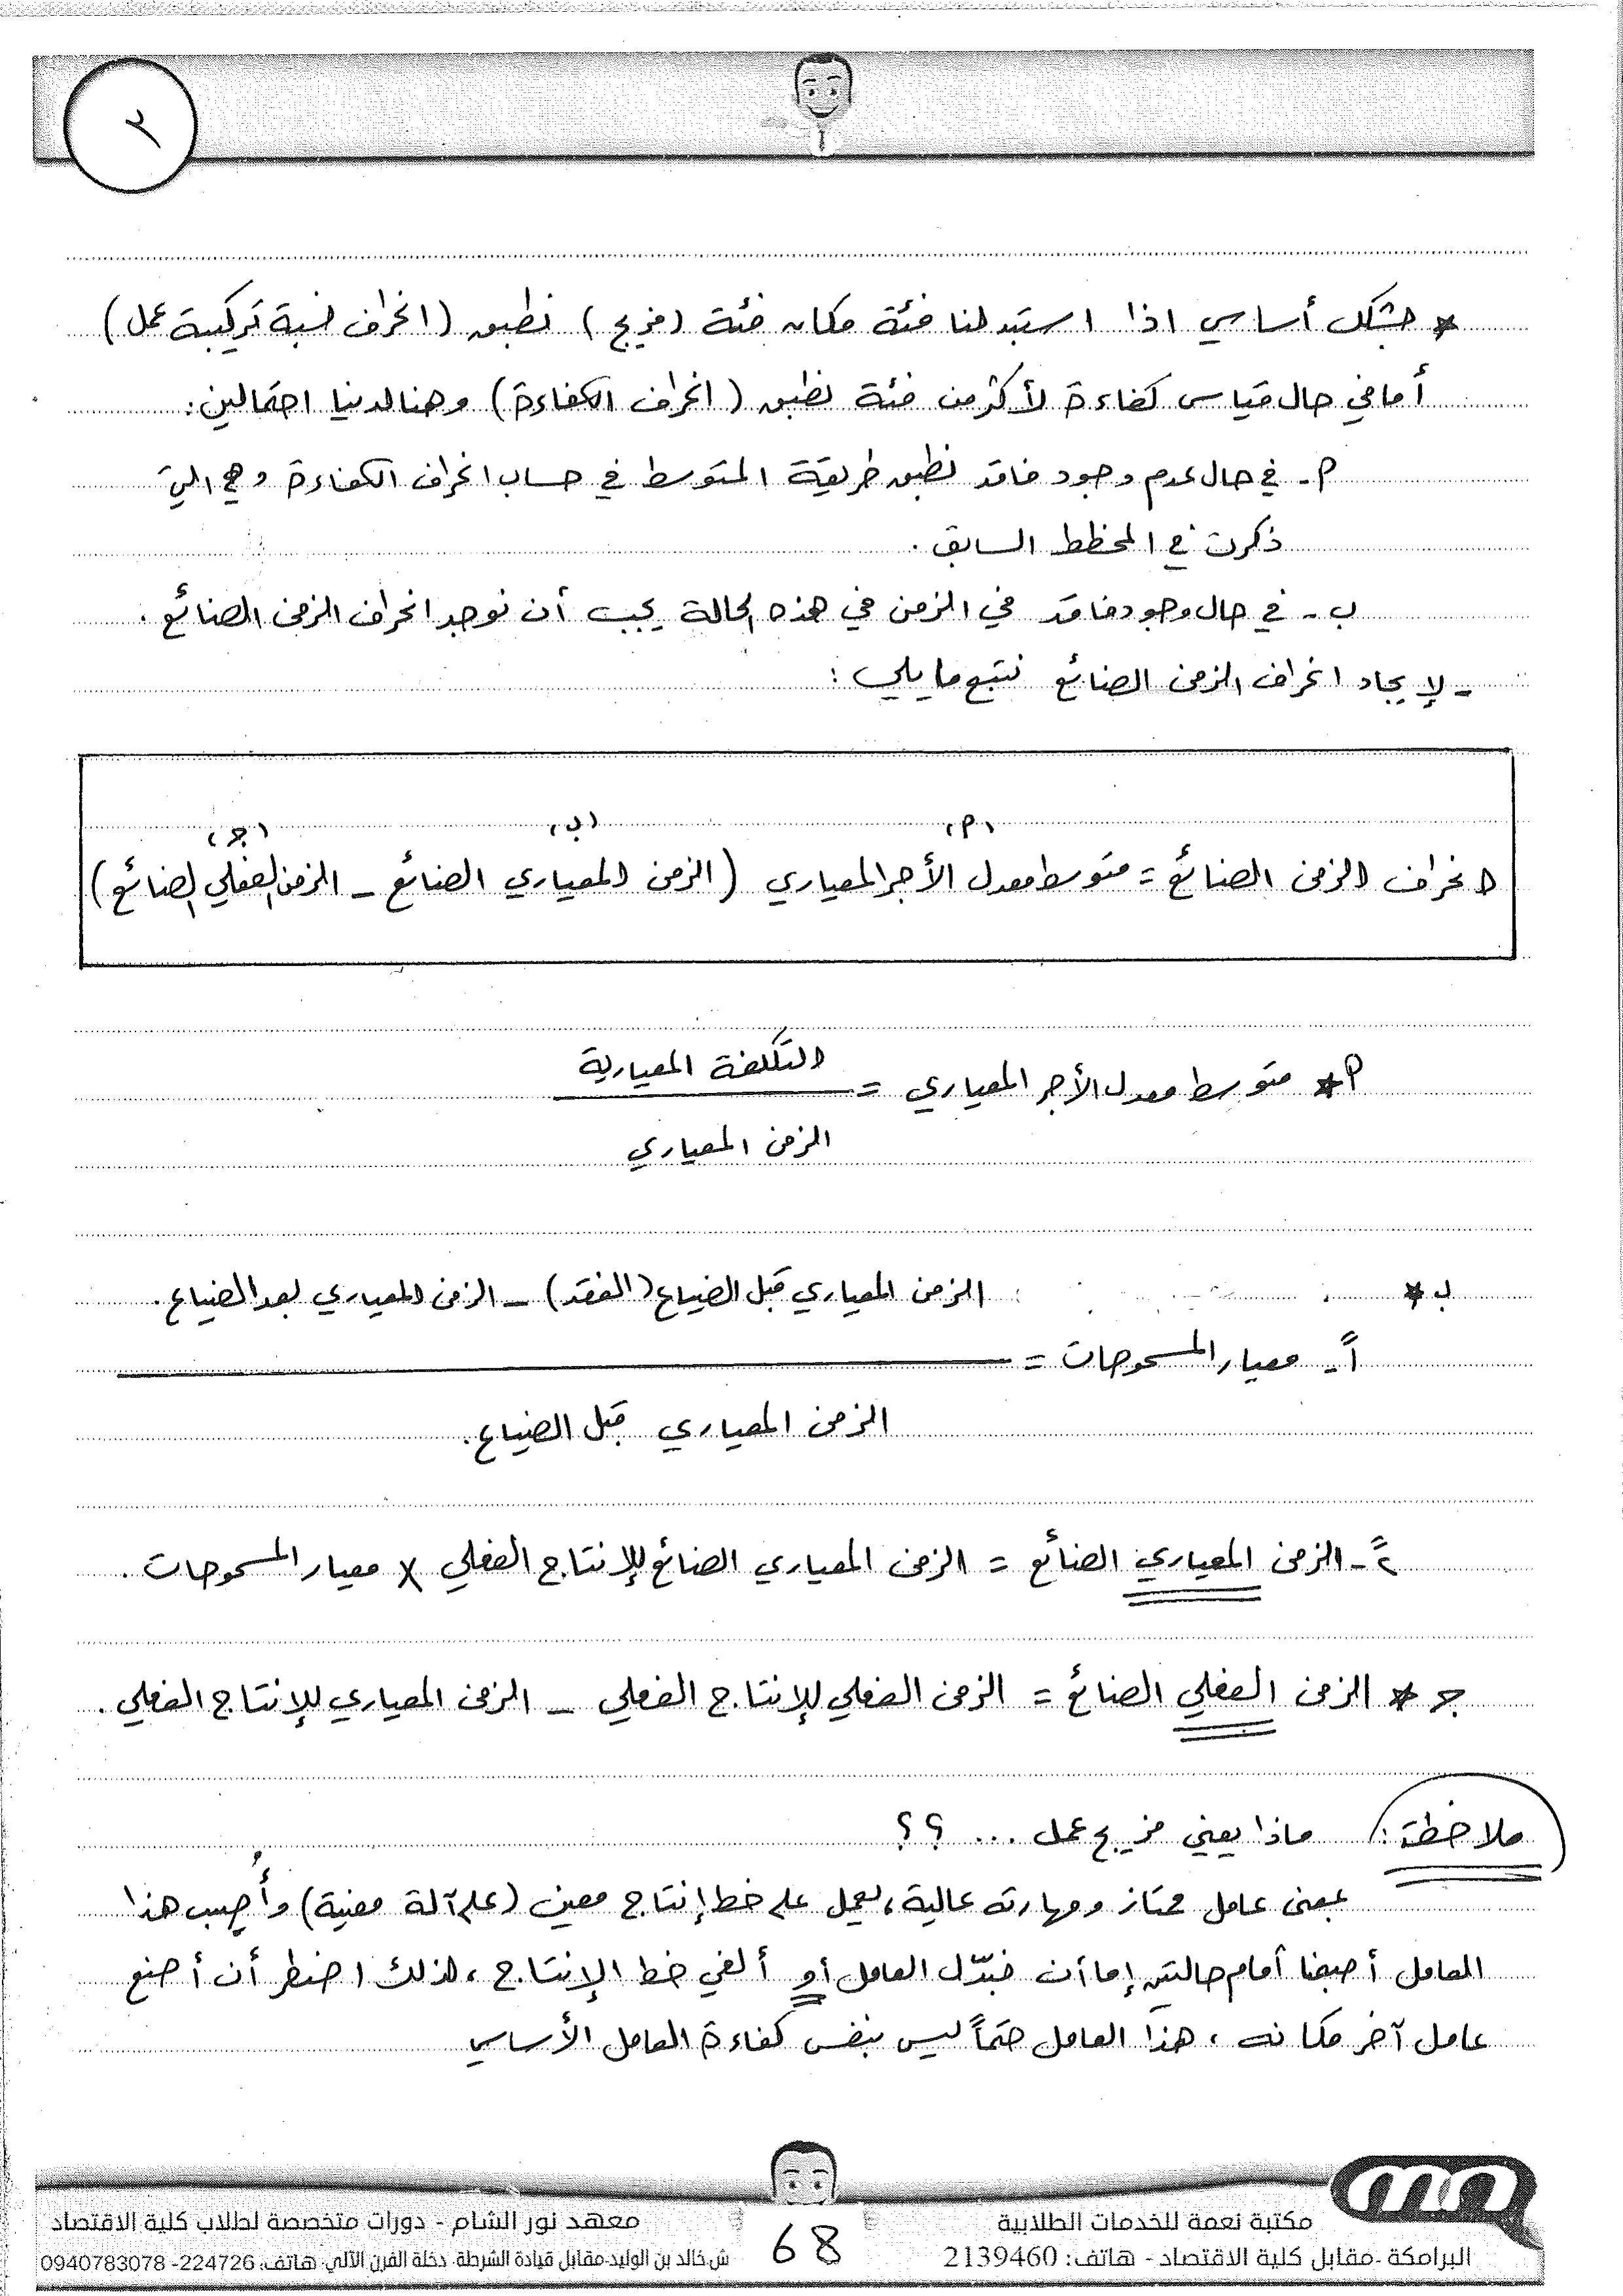 ٢
* بشكل أساسي اذا استبدلنا فئة مكان فئة (مزيج) نطبق (انحراف نسبة تركيبة عمل)
أما في حال قياس كفاءة لأكثر من فئة نطبق (انحراف الكفاءة) وهنا لدينا احتمالين:
أ- في حال عدم وجود فاقد نطبق طريقة المتوسط في حساب انحراف الكفاءة وهي التي
ذكرت في المخطط السابق.
ب- في حال وجود فاقد في الزمن في هذه الحالة يجب أن نوجد انحراف الزمن الضائع.
- لإيجاد انحراف الزمن الضائع نتبع ما يلي:
(أ) (ب) (ج)
انحراف الزمن الضائع = متوسط معدل الأجر المعياري (الزمن المعياري الضائع - الزمن الفعلي الضائع)
أ* متوسط معدل الأجر المعياري = التكلفة المعيارية
الزمن المعياري
ب* الزمن المعياري قبل الضياع (الفقد) - الزمن المعياري بعد الضياع.
١ً- معيار المسموحات =
الزمن المعياري قبل الضياع.
٢ً- الزمن المعياري الضائع = الزمن المعياري الضائع للإنتاج الفعلي × معيار المسموحات.
ج* الزمن الفعلي الضائع = الزمن الفعلي للإنتاج الفعلي - الزمن المعياري للإنتاج الفعلي.
ملاحظة: ماذا يعني مزيج عمل ... ؟؟
بمعنى عامل ممتاز ومهارته عالية، يعمل على خط إنتاج معين (على آلة معينة) وأُصيب هذا
العامل أصبحنا أمام حالتين إما أن نبدّل العامل أو ألغي خط الإنتاج، لذلك اضطر أن أضع
عامل آخر مكانه، هذا العامل حتماً ليس بنفس كفاءة العامل الأساسي
مكتبة نعمة للخدمات الطلابية
البرامكة -مقابل كلية الاقتصاد - هاتف: 2139460
68
معهد نور الشام - دورات متخصصة لطلاب كلية الاقتصاد
ش.خالد بن الوليد-مقابل قيادة الشرطة- دخلة الفرن الآلي- هاتف: 224726- 0940783078